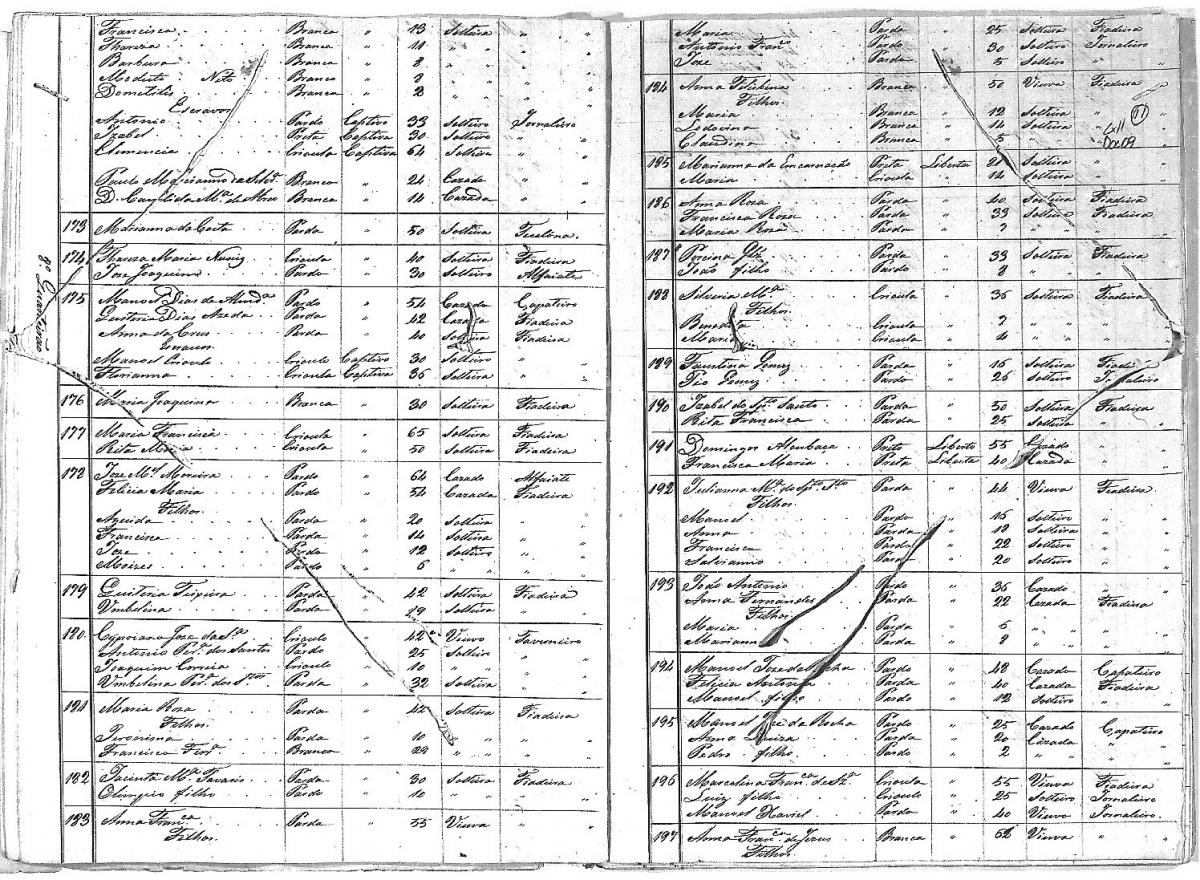 Francisca Branca " 13 Solteira " "
Thereza Branca " 11 " " "
Barbara Branca " 8 " " "
Modesto Neto Branco " 3 " " "
Domitilis Branca " 2 " " "
Escravos
Antonio Pardo Captivo 33 Solteiro Jornaleiro
Izabel Preta Captiva 30 Solteira " "
Clemencia Crioula Captiva 64 Solteira " "
Paulo Branco " 24 Cazado " "
D. Candida Mª de Branca " 14 Cazada " "
173 Marianna da Costa Parda " 50 Solteira "
174 Thereza Maria Crioula " 40 Solteira Fiadeira
Joze Joaquim Pardo " 30 Solteiro Alfaiate
8º Quarteirão
175 Manoel Dias de Almdª Pardo " 54 Cazado Çapateiro
Dias Parda " 42 Cazada Fiadeira
Anna da Cruz Parda " 40 Solteira Fiadeira
Escravos
Manoel Crioulo Crioulo Captivo 30 Solteiro "
Florianna Crioula Captiva 36 Solteira " "
176 Maria Joaquina Branca " 30 Solteira Fiadeira
177 Maria Francisca Crioula " 65 Solteira Fiadeira
Rita Maria Crioula " 50 Solteira Fiadeira
178 Joze Mel Moreira Pardo " 64 Cazado Alfaiate
Felicia Maria Parda " 54 Cazada Fiadeira
Filhos
Parda " 20 Solteira "
Francisca Parda " 14 Solteira "
Joze Pardo " 12 Solteiro "
Moizes Pardo " 6 " " "
179 Quiteria Teixeira Parda " 42 Solteira Fiadeira
Umbelina Parda " 19 Solteira "
180 Cypriano Joze da Sª Crioulo " 42 Viuvo Taverneiro
Antonio Perª dos Santos Pardo " 25 Solteiro
Joaquim Correia Crioulo " 10 " "
Umbelina Perª dos Stos Parda " 32 Solteira "
181 Maria Roza Parda " 42 Solteira Fiadeira
Filhos
Jeronima Parda " 10 " "
Francisco Ferª Branco " 29 " "
182 Jacinta Mª Tavares Parda " 30 Solteira Fiadeira
Olimpio filho Pardo " 10 " "
183 Anna Franca Parda " 55 Viuva "
Filhos
Maria Parda " 25 Solteira Fiadeira
Antonio Franco Pardo " 30 Solteiro Jornaleiro
Joze Pardo " 5 Solteiro " "
184 Anna Branca " 50 Viuva Fiadeira
Filhos
Maria Branca " 12 Solteira " "
Lodovina Branca " 14 Solteira "
Claudina Branca " 5 " "
11
185 Marianna da Encarnação Preta Liberta 21 Solteira "
Maria Crioula " 14 Solteira "
186 Anna Roza Parda " 40 Solteira Fiadeira
Francisca Roza Parda " 33 Solteira Fiadeira
Maria Roza Parda " 7 " "
187 Parda " 33 Solteira Fiadeira
João filho Pardo " 8 " "
188 Silveria Mª Crioula " 36 Solteira Fiadeira
Filhos
Crioula " 7 " "
Maria Crioula " 4 " "
189 Faustina Gomez Parda " 16 Solteira
Pio Gomez Pardo " 26 Solteiro
190 Izabel do Spto Santo Parda " 50 Solteira Fiadeira
Rita Francisca Parda " 25 Solteira "
191 Domingos Preto Liberto 55 Cazado "
Francisca Maria Preta Liberta 40 Cazada "
192 Julianna Mª do Spto Sto Parda " 44 Viuva Fiadeira
Filhos
Manoel Pardo " 16 Solteiro "
Anna Parda " 18 Solteira "
Francisco Pardo " 22 Solteiro "
Salvianno Pardo " 20 Solteiro "
193 João Antonio Pardo " 36 Cazado "
Anna Fernandes Parda " 22 Cazada Fiadeira
Filhos
Maria Parda " 6 " "
Marianna Parda " 8 " "
194 Manoel Joze de Pardo " 48 Cazado Çapateiro
Felicia Antonia Parda " 40 Cazada Fiadeira
Manoel filho Pardo " 12 Solteiro "
195 Manoel da Rocha Pardo " 25 Cazado Çapateiro
Anna Luiza Parda " 20 Cazada "
Pedro filho Pardo " 2 " "
196 Marcelina Franca de Sza Crioula " 55 Viuva Fiadeira
Luiz filho Crioulo " 25 Solteiro Jornaleiro
Manoel Pardo " 40 Viuvo Jornaleiro
197 Anna Franca de Jezus Branca " 68 Viuva "
Filhos